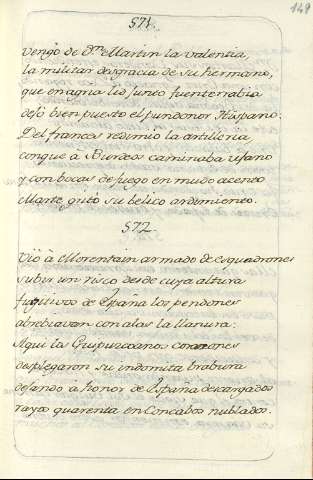 149
571.
vengó de Dn. Martin la valentia,
la militar desgracia de su hermano,
que en agria lid junto fuenterrabia
dejó bien puesto el pundonor Hispano.
Del frances redimió la artilleria
conque à Burdeos caminaba ufano
y con bocas de fuego en mudo acento
Marte gritó su belico ardimiento.
572.
Vió à Morentain armado de esquadrones
subir un risco desde cuya altura
fugitivos de España los pendones
abrebiavan con alas la llanura:
Aqui los Guipuzcoanos corazones
desplegaron su indomita brabura
dejando à honor de España descargados
rayos quarenta en concabos nublados.